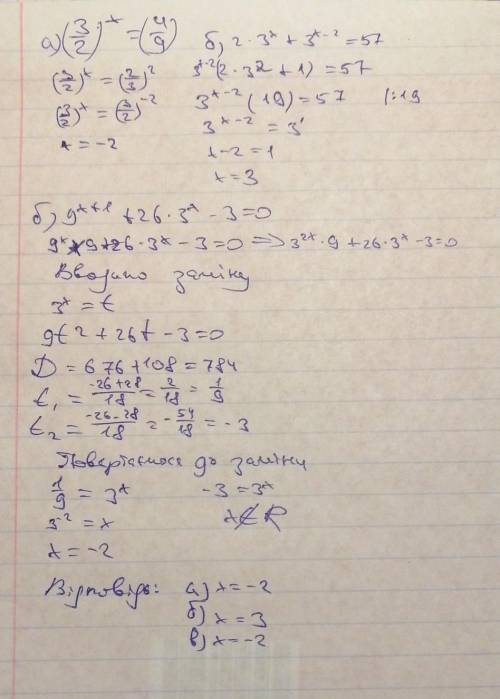 а) (3/2)^x = (4/9)
(3/2)^x = (2/3)^2
(3/2)^x = (3/2)^-2
x = -2
б) 2 · 3^x + 3^x-2 = 57
3^x-2 (2 · 3^2 + 1) = 57
3^x-2 (19) = 57 |:19
3^x-2 = 3^1
x-2 = 1
x = 3
б) 9^x+1 + 26 · 3^x - 3 = 0
9^x · 9 + 26 · 3^x - 3 = 0 => 3^2x · 9 + 26 · 3^x - 3 = 0
Вводимо заміну
3^x = t
9t^2 + 26t - 3 = 0
D = 676 + 108 = 784
t₁ = (-26+28)/18 = 2/18 = 1/9
t₂ = (-26-28)/18 = -54/18 = -3
Повертаємося до заміни
1/9 = 3^x -3 = 3^x
3^-2 = x x ∉ R
x = -2
Відповідь: а) x = -2
б) x = 3
в) x = -2